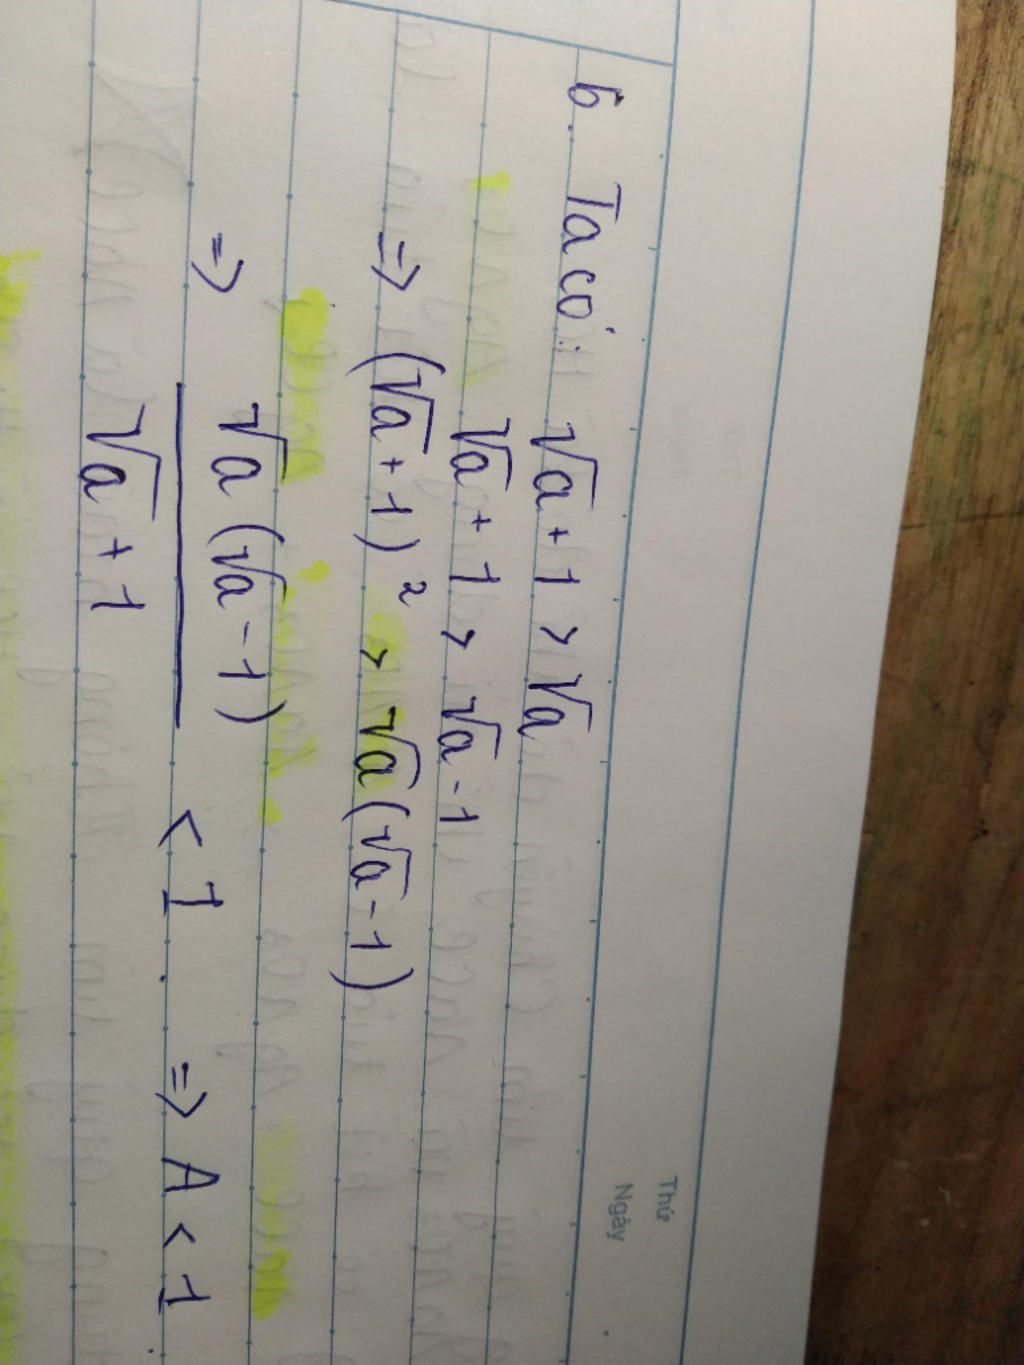 Thứ
Ngày
b. Ta có: √a + 1 > √a
√a + 1 > √a - 1
=> (√a + 1)² > √a (√a - 1)
=> √a (√a - 1)
√a + 1
< 1. => A < 1